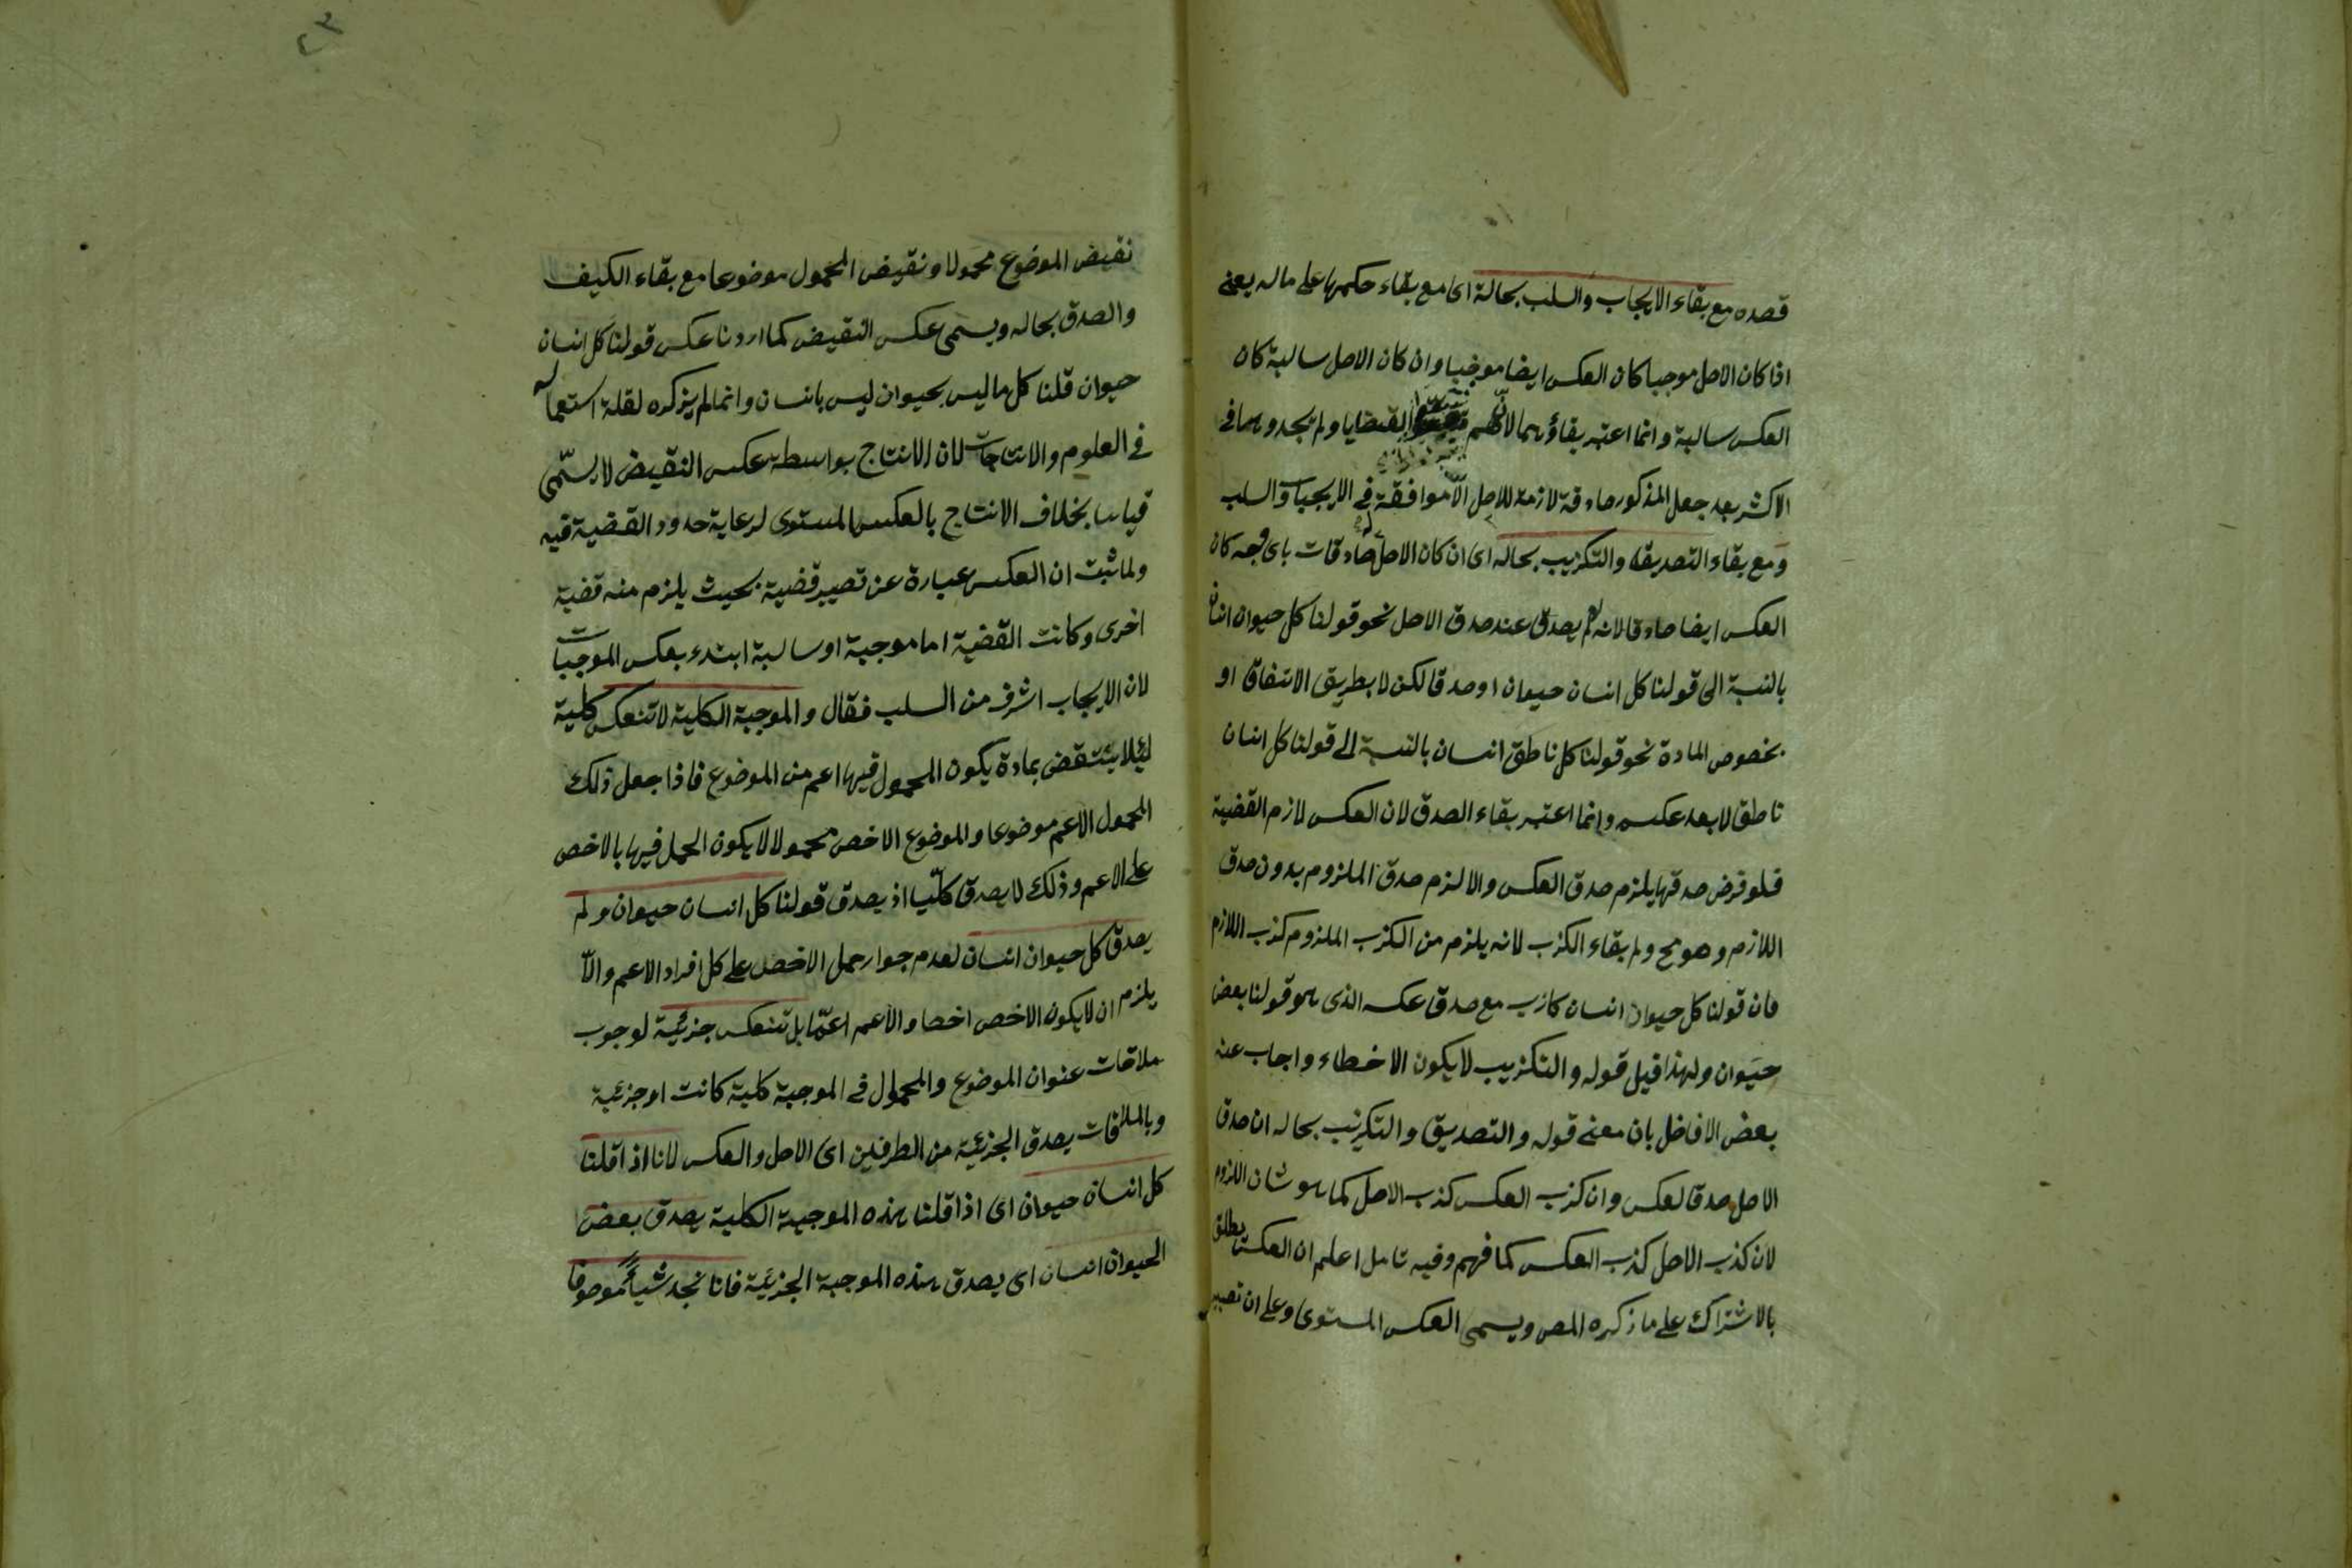 قصده مع بقاء الايجاب والسلب بحالة اى مع بقاء حكمها على ماله يعنى
اذا كان الاصل موجبا كان العكس ايضا موجبا وان كان الاصل سالبة كان
العكس سالبة وانما اعتبر بقاؤهما لانهم القضايا ولم يجدوهما فى
الاكثر بعد جعل المذكور صادقة لازمة للاصل الا موافقة فى الايجاب والسلب
ومع بقاء التصديق والتكزيب بحاله اى ان كان الاصل صادقات باى وجه كان
العكس ايضا صادقا لانه لم يصدق عند صدق الاصل نحو قولنا كل حيوان انسان
بالنسبة الى قولنا كل انسان حيوان او صدقا لكن لا بطريق الاتفاق او
بخصوص المادة نحو قولنا كل ناطق انسان بالنسبة الى قولنا كل انسان
ناطق لا بعد عكسه وانما اعتبر بقاء الصدق لان العكس لازم القضية
فلو فرض صدقها يلزم صدق العكس والا لزم صدق الملزوم بدون صدق
اللازم وهو مح ولم بقاء الكزب لانه يلزم من الكزب الملزوم كذب اللازم
فان قولنا كل حيوان انسان كازب مع صدق عكسه الذى هو قولنا بعض
حيوان ولهذا قيل قوله والتكزيب لا يكون الا خطاء واجاب عنه
بعض الافاضل بان معنى قوله والتصديق والتكزيب بحاله ان صدق
الاصل صدقا لعكس وان كزب العكس كذب الاصل كما هو شان اللزوم
لان كذب الاصل كذب العكس كما فهم وفيه تامل اعلم ان العكس يطلق
بالاشتراك على ما ذكره المص ويسمى العكس المستوى وعلى ان تصيير
٢٣
نقيض الموضوع محمولا ونقيض المحمول موضوعا مع بقاء الكيف
والصدق بحاله ويسمى عكس النقيض كما اردنا عكس قولنا كل انسان
حيوان قلنا كل ما ليس بحيوان ليس بانسان وانما لم يزكره لقلة استعماله
فى العلوم والانتاجات لان الانتاج بواسطه عكس النقيض لا يسمّى
قياسا بخلاف الانتاج بالعكس المستوى لرعاية حدود القضية فيه
ولما ثبت ان العكس عبارة عن تصيير قضية بحيث يلزم منه قضية
اخرى وكانت القضية اما موجبة او سالبة ابتدء بعكس الموجبات
لان الايجاب اشرف من السلب فقال والموجبة الكلية لا تنعكس كلية
ليئلا ينتقض بمادة يكون المحمول فيها اعم من الموضوع فاذا جعل ذلك
المحمول الاعم موضوعا والموضوع الاخص محمولا لا يكون الحمل فيها بالاخص
على الاعم وذلك لا يصدق كليّا اذ يصدق قولنا كل انسان حيوان ولم
يصدق كل حيوان انسان لعدم جواز حمل الاخص على كل افراد الاعم والّا
يلزم ان لا يكون الاخص اخصا والاعم اعمّا بل تنعكس جزئية لوجوب
ملاقات عنوان الموضوع والمحمول فى الموجبة كلية كانت او جزئية
وبالملاقات يصدق الجزئية من الطرفين اى الاصل والعكس لانا اذا قلنا
كل انسان حيوان اى اذا قلنا هذه الموجبة الكلية يصدق بعض
الحيوان انسان اى يصدق هذه الموجبة الجزئية فانا نجد شيأ موصوفا